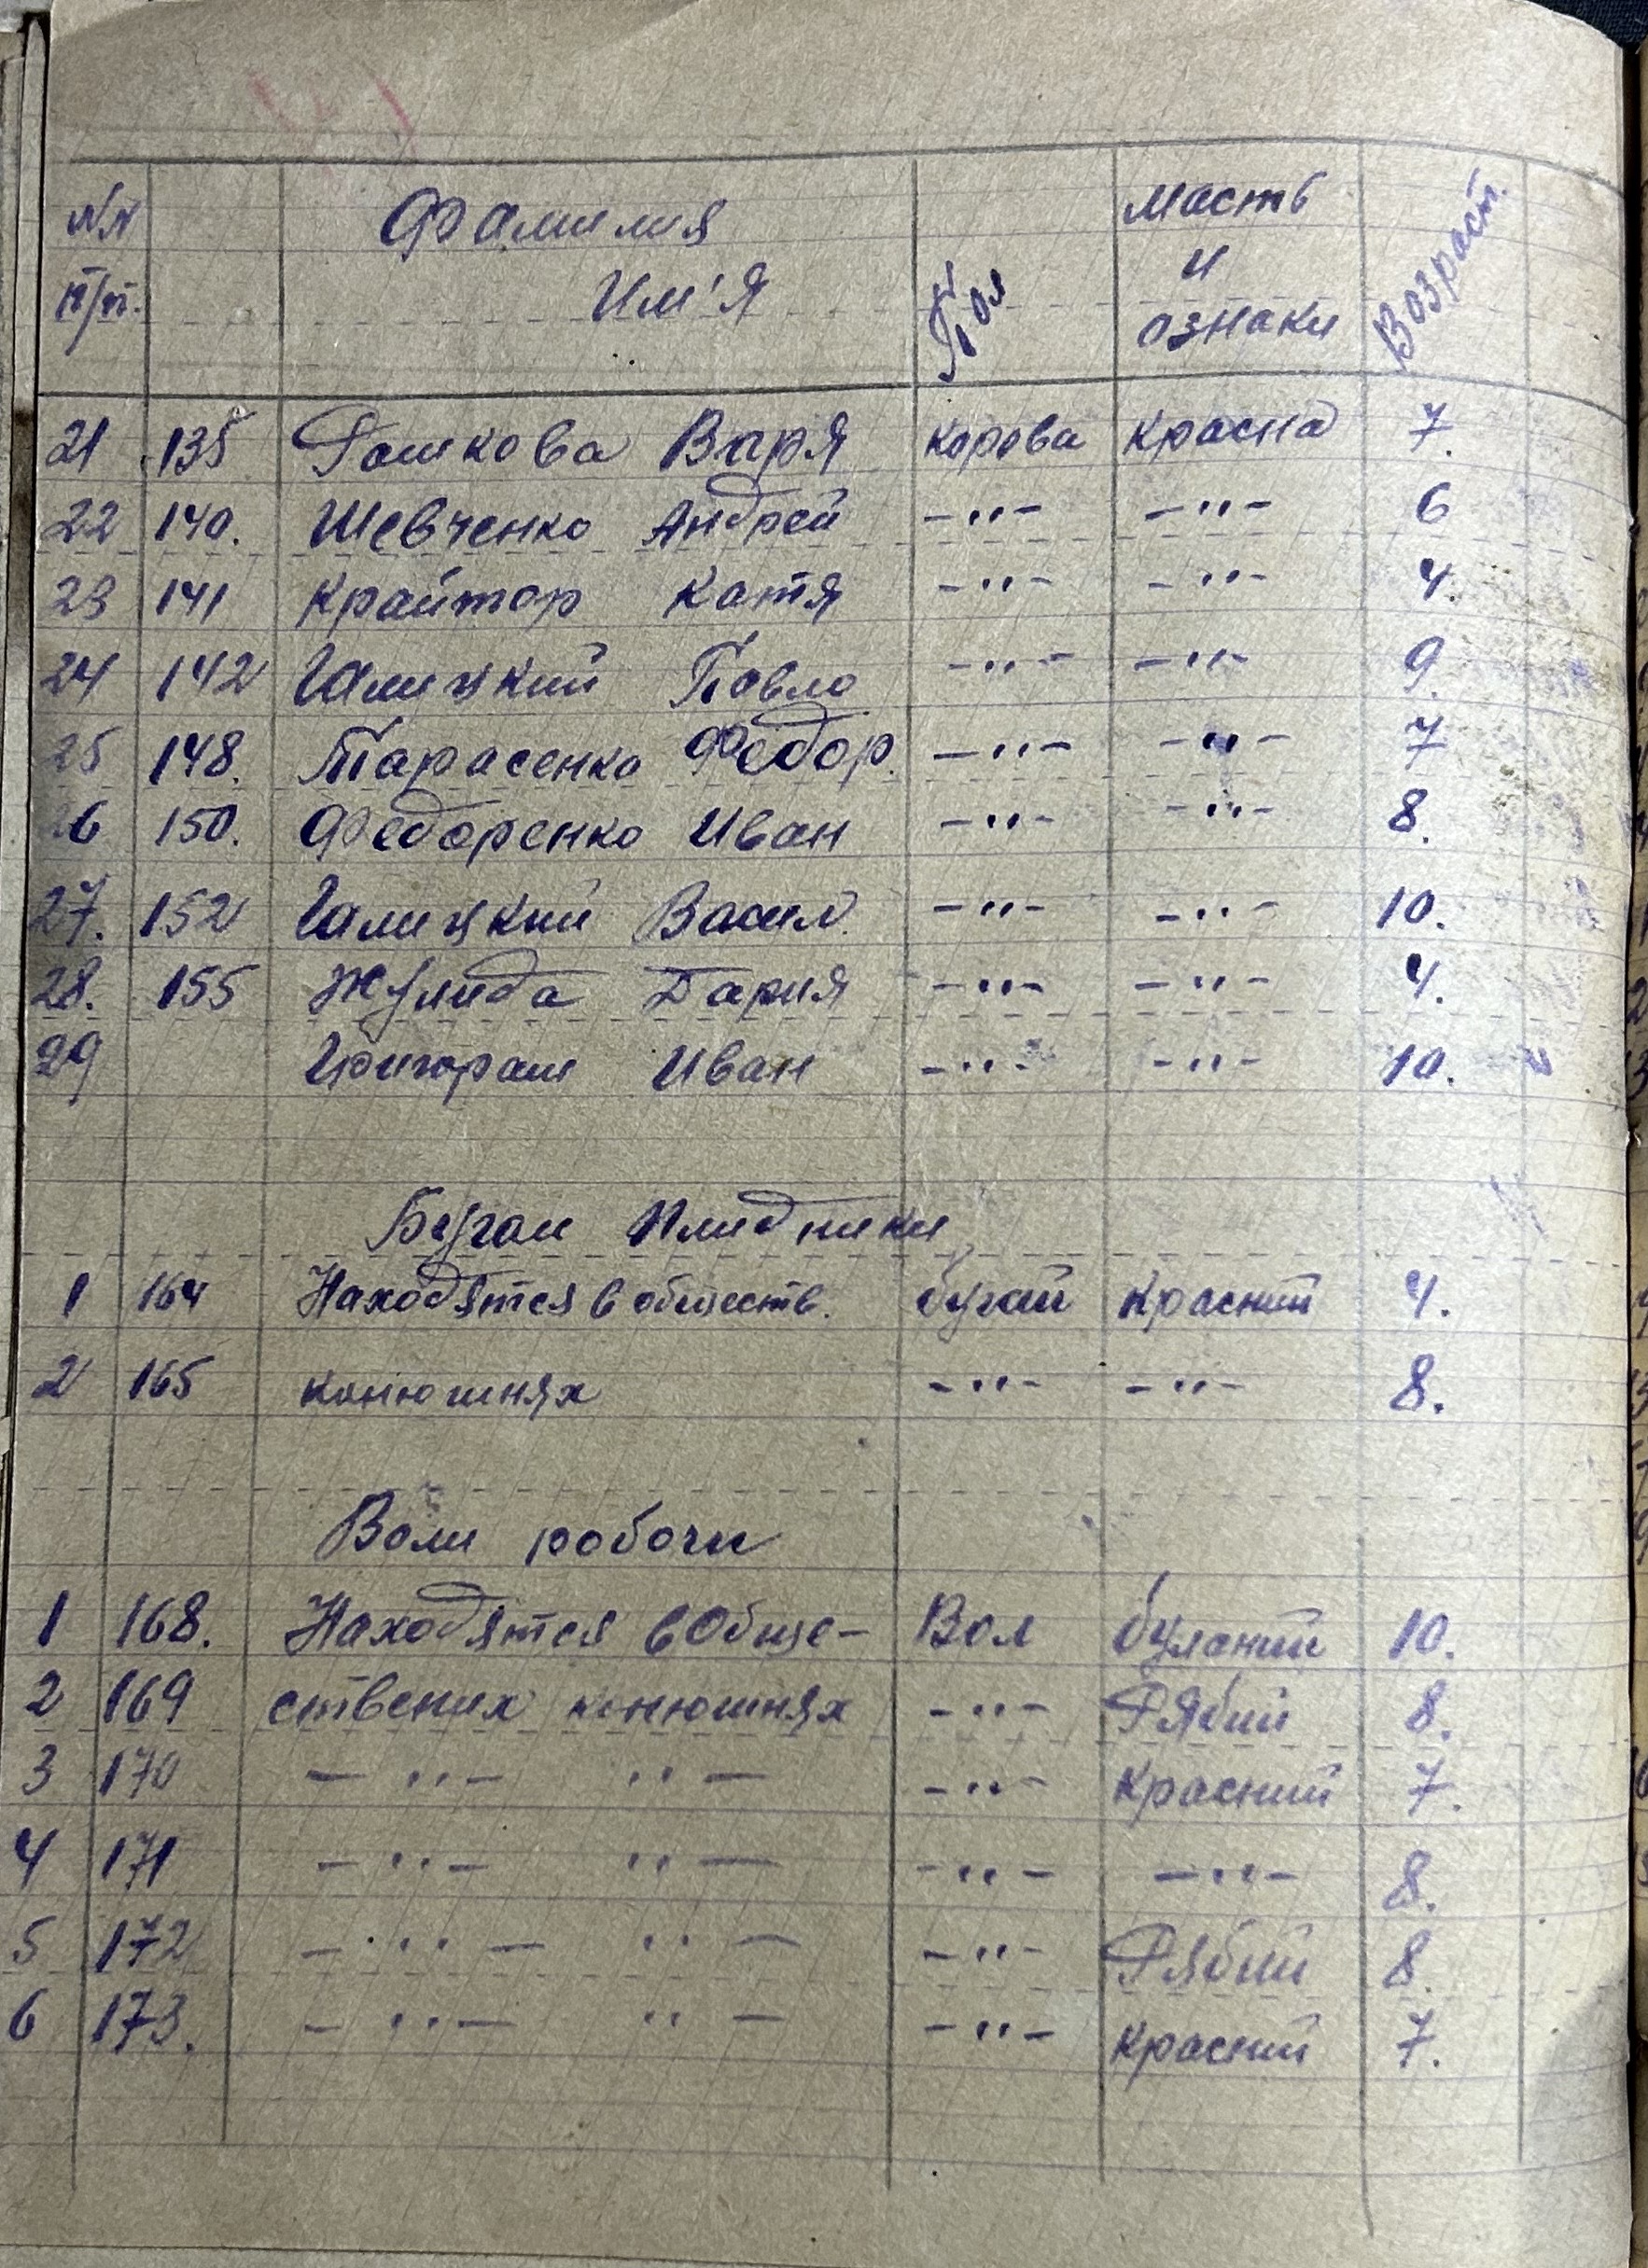 NN п/п. Фамилия Им'я Пол масть и ознаки Возраст.
21 135 Рашкова Варя корова красна 7.
22 140. Шевченко Андрей -"- -"- 6
23 141 Крайтор Катя -"- -"- 4.
24 142 Галицкий Павло -"- -"- 9.
25 148. Тарасенко Федор. -"- -"- 7
26 150. Федоренко Иван -"- -"- 8.
27. 152 Галицкий Васил. -"- -"- 10.
28. 155 Жулида Дария -"- -"- 4.
29 Григораш Иван -"- -"- 10.
Бугаи Плидники
1 164 Находятся в обществ. бугай красний 4.
2 165 конюшнях -"- -"- 8.
Воли робочи
1 168. Находятся в Обще- Вол буланий 10.
2 169 ствених конюшнях -"- Рябий 8.
3 170 - " - " - -"- Красний 7.
4 171 - " - " - -"- -"- 8.
5 172 - " - " - -"- Рябий 8.
6 173. - " - " - -"- Красний 7.